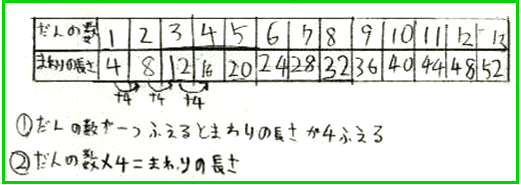 だんの数 1 2 3 4 5 6 7 8 9 10 11 12 13
まわりの長さ 4 8 12 16 20 24 28 32 36 40 44 48 52
+4 +4 +4
①だんの数が一つふえるとまわりの長さが4ふえる
②だんの数×4=まわりの長さ